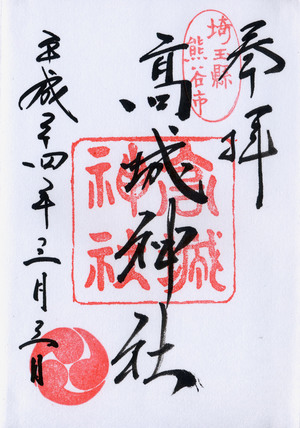 奉拝
埼玉縣
熊谷市
高城神社
高城
神社
平成二十四年三月三日